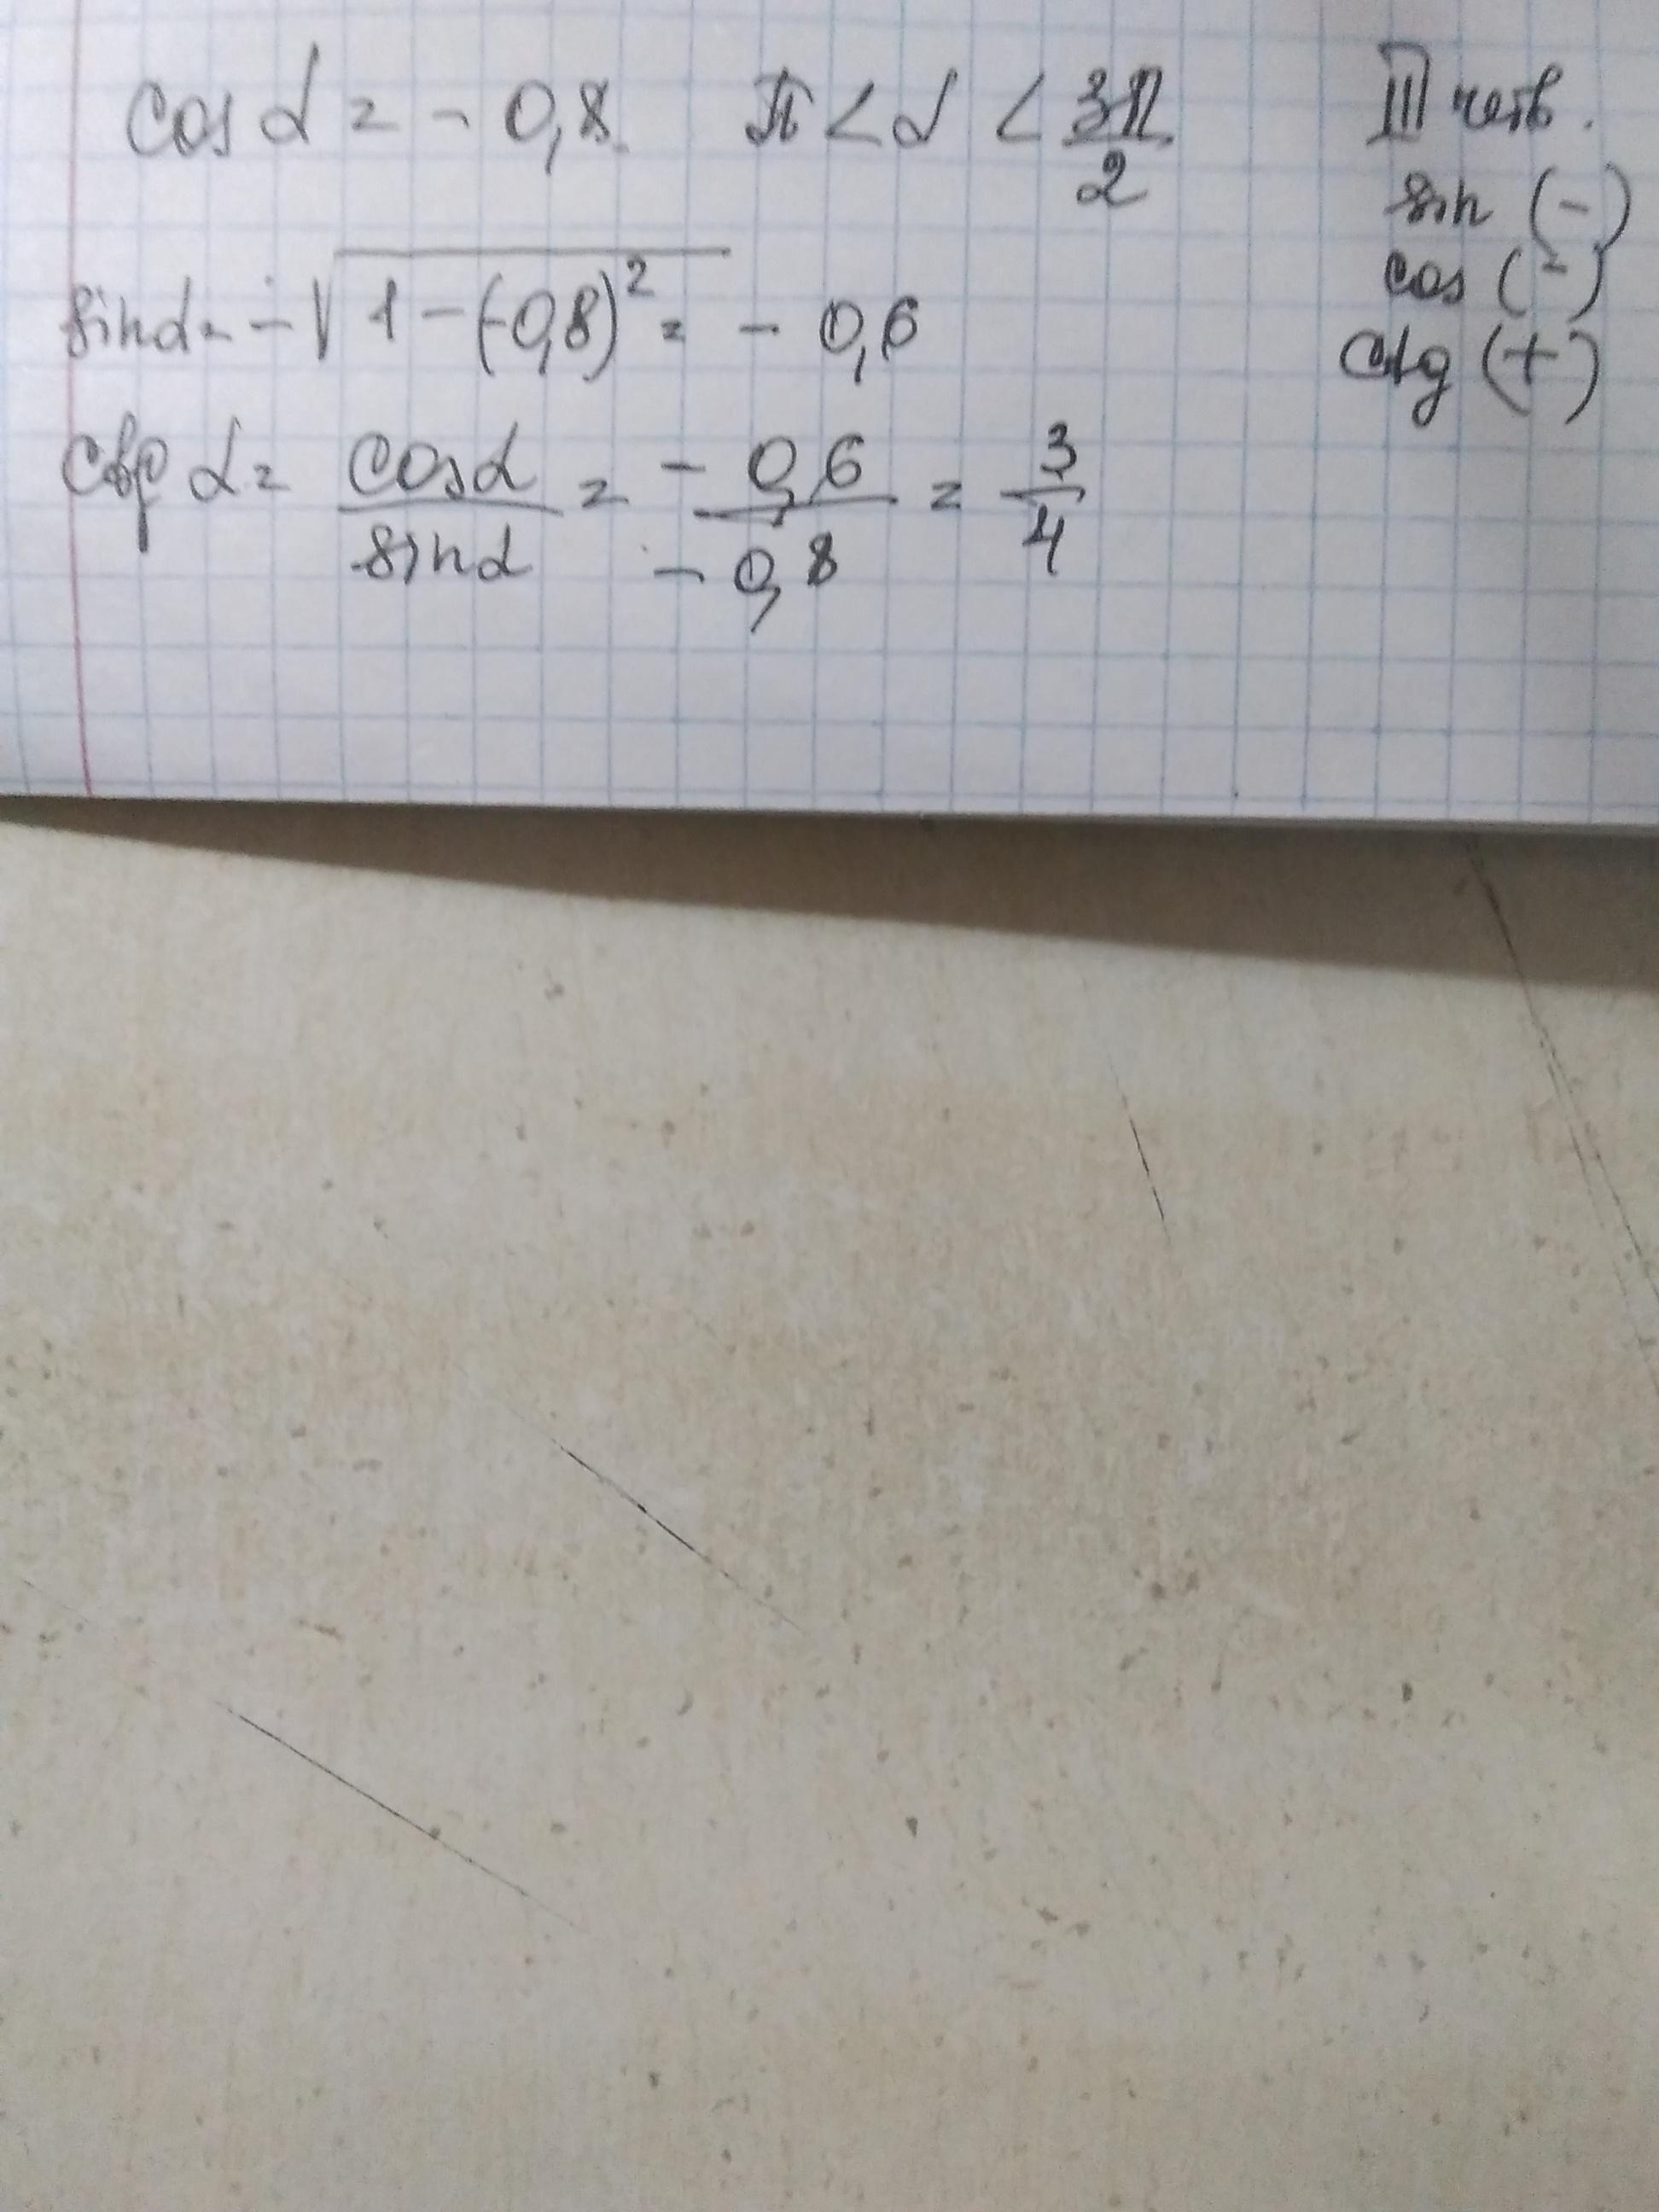 cos α = - 0,8   π < α < 3π/2
III четв.
sin (-)
cos (-)
ctg (+)
sin α = - √(1 - (-0,8)² = - 0,6
ctg α = cos α / sin α = - 0,6 / - 0,8 = 3/4